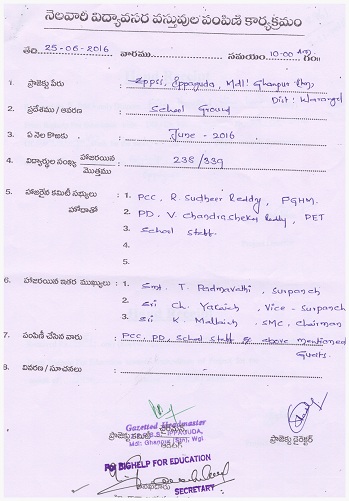 నెలవారీ విద్యావసర వస్తువుల పంపిణీ కార్యక్రమం
తేది. 25-06-2016 వారము సమయం 10-00 AM గం॥
1. ప్రాజెక్టు పేరు : Zppsi, Ippaguda, Mdl: Ghanpur (Stn), Dist: Warangal
2. ప్రదేశము / ఆవరణ : School Ground
3. ఏ నెల కొఱకు : June - 2016
4. విద్యార్థుల సంఖ్య హాజరయిన / మొత్తము : 238/339
5. హాజరైన కమిటీ సభ్యులు : 1. PCC, R. Sudheer Reddy, PGHM.
హోదాతో 2. PD, V. Chandrashekar Reddy, PET
3. School staff.
4.
5.
6. హాజరయిన ఇతర ముఖ్యులు : 1. Smt. T. Padmavathi, Surpanch
2. Sri Ch. Yakaiah, Vice - Surpanch
3. Sri K. Mallaiah, SMC, Chairman
7. పంపిణీ చేసిన వారు : PCC, PD, School staff & above mentioned Guests.
8. వివరణ / సూచనలు :
Gazetted Headmaster
IPPAGUDA,
Mdl: Ghanpur (Stn), Wgl.
ప్రాజెక్టు డైరెక్టర్
FOR BIGHELP FOR EDUCATION
SECRETARY